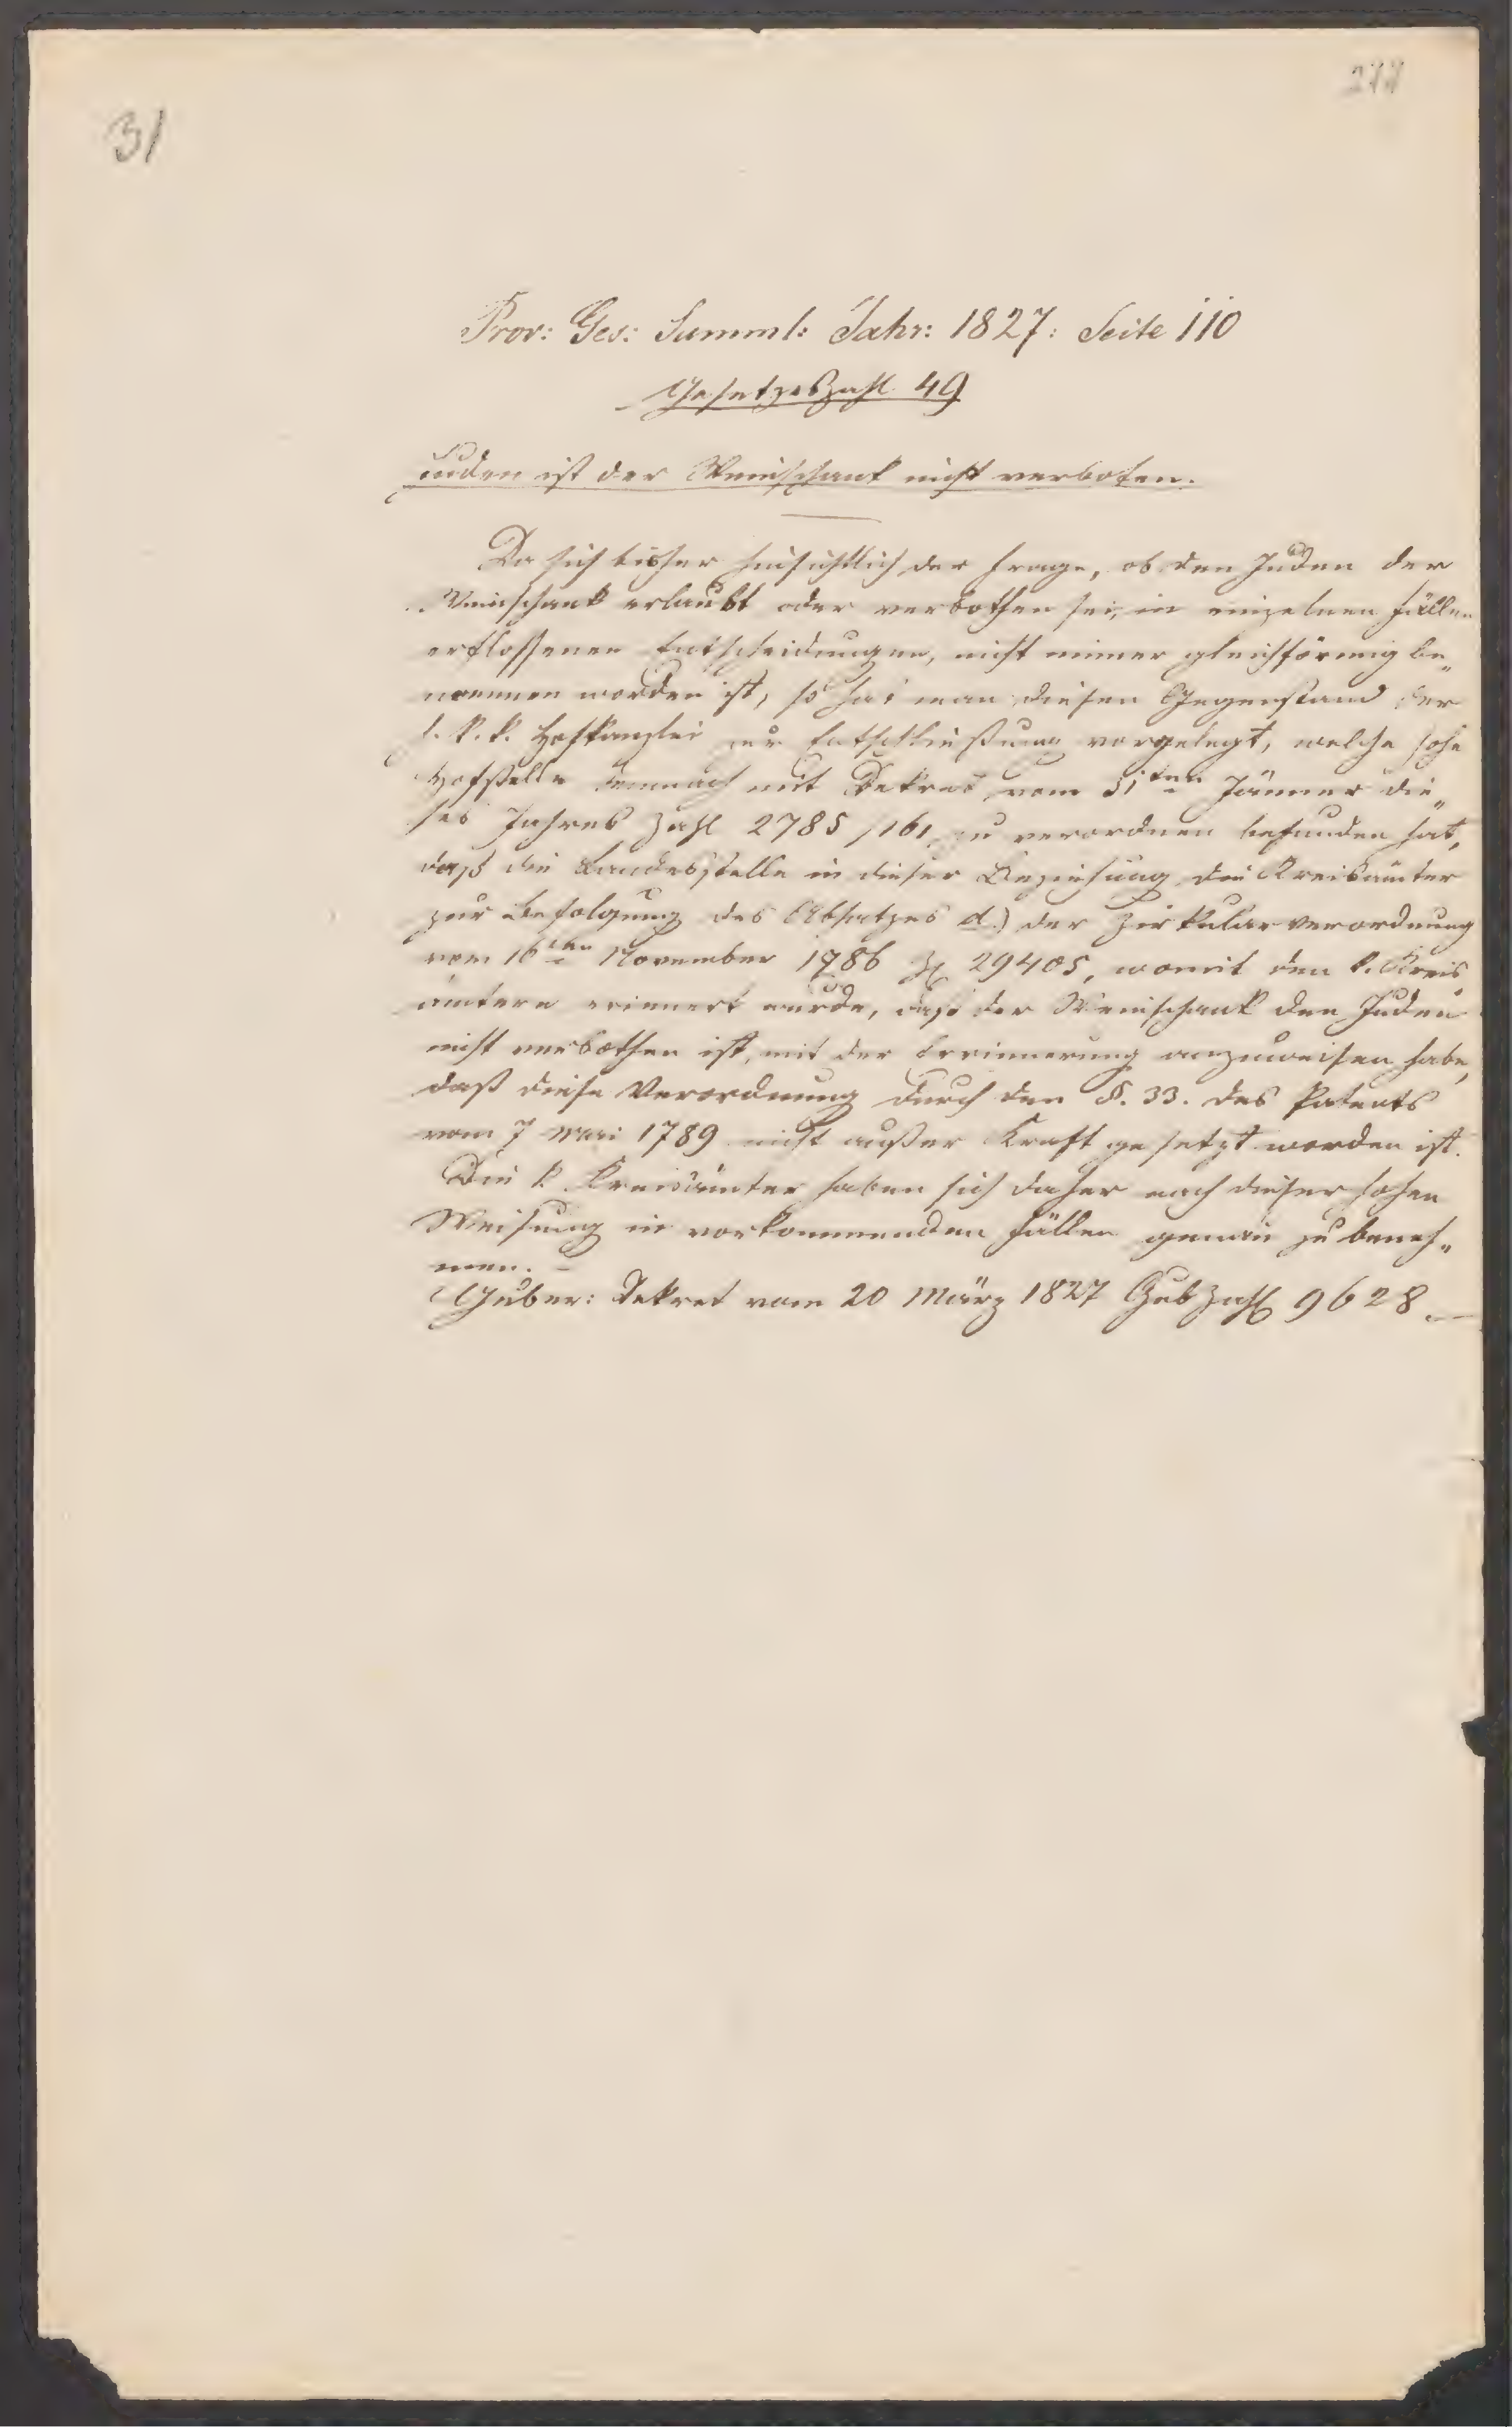 277
31
Prov: Ges: Samml: Jahr: 1827: Seite 110
Gesetzeszahl 49
Juden ist der Weinschank nicht verboten.
Da sich bisher hinsichtlich der Frage, ob den Juden der
Weinschank erlaubt oder verbothen sei, in einzelnen Fällen
erflossenen Entscheidungen, nicht immer gleichförmig be„
nommen worden ist, so hat man diesen Gegenstand der
k. k. Hofkanzlei zur Entschließung vorgelegt, welche hohe
Hofstelle demnach mit Dekret vom 31ten Jänner die„
ses Jahres Zahl 2785/161 zu verordnen befunden hat,
daß die Landesstelle in dieser Beziehung die Kreisämter
zur Befolgung des Absatzes d.) der Zirkularverordnung
vom 16ten November 1786 Z. 29405, womit den k. Kreis„
ämtern erinnert wurde, daß der Weinschank den Juden
nicht verbothen ist, mit der Erinnerung anzuweisen habe,
daß diese Verordnung durch den §. 33. des Patents
vom 7 Mai 1789 nicht außer Kraft gesetzt worden ist.
Die k. Kreisämter haben sich daher nach dieser hohen
Weisung in vorkommenden Fällen genau zu beneh„
men. –
Guber: Dekret vom 20 März 1827 Gub Zahl 9628. —